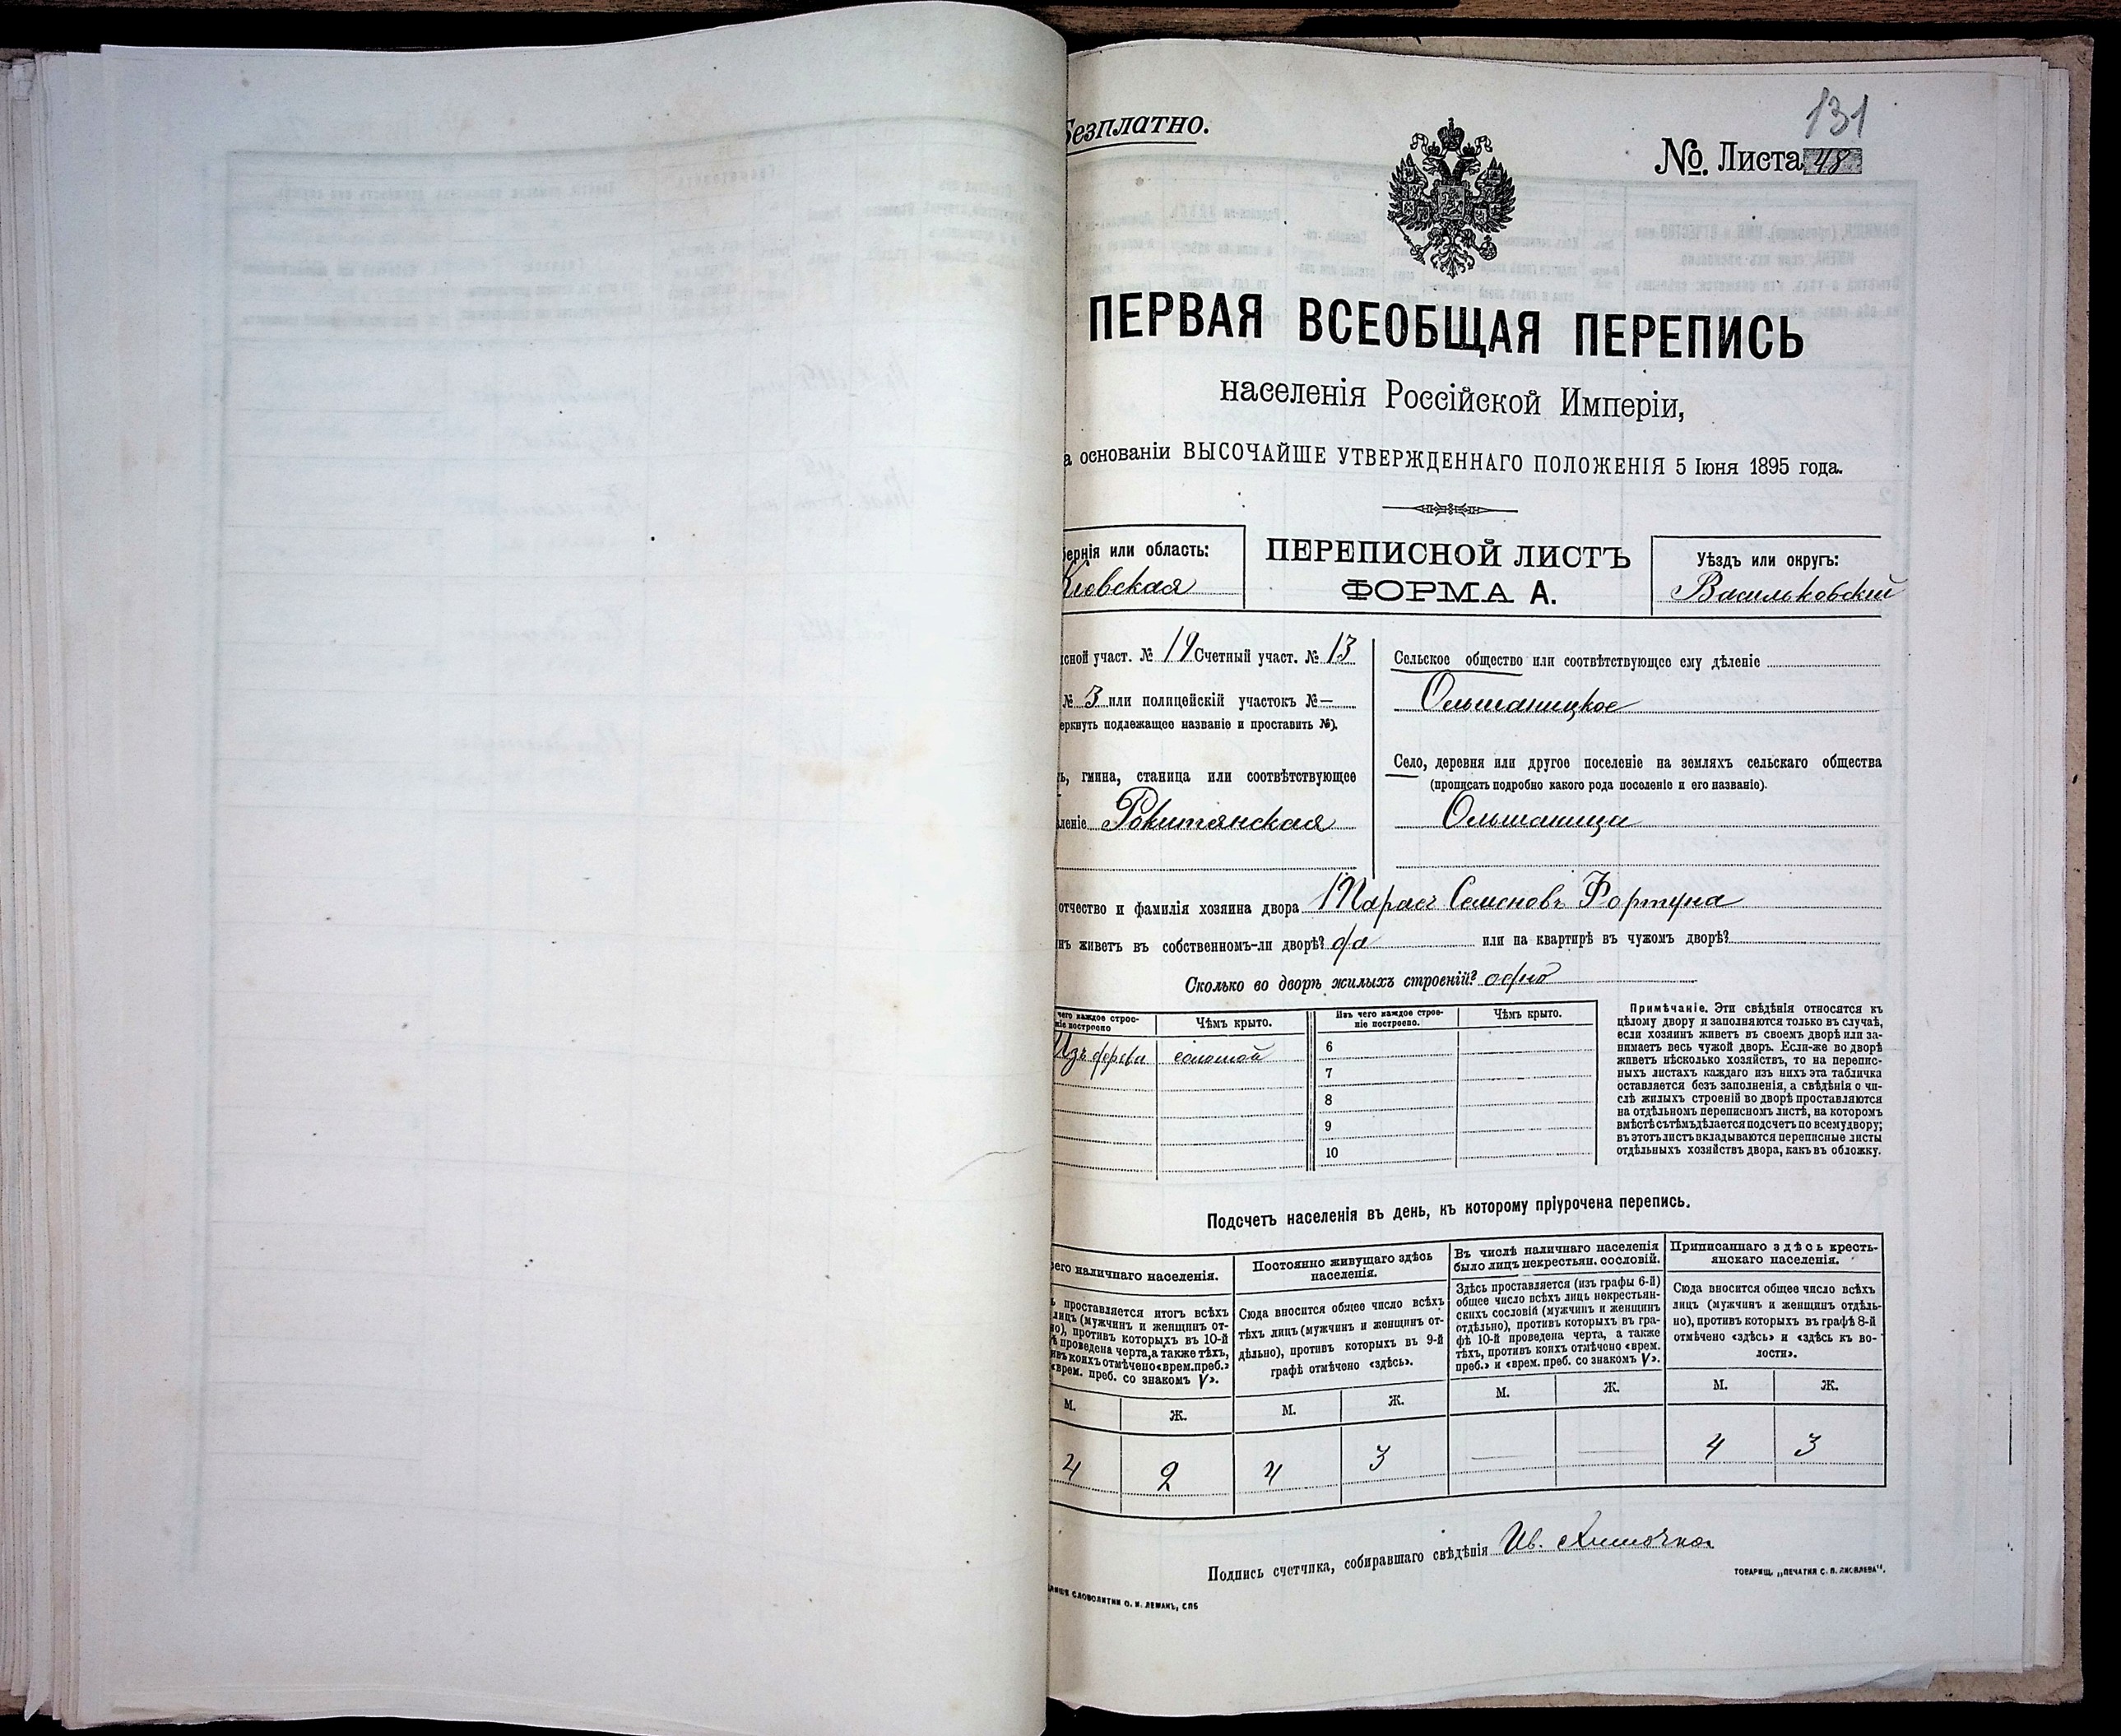 Безплатно.
131
№ Листа 48
ПЕРВАЯ ВСЕОБЩАЯ ПЕРЕПИСЬ
населенія Россійской Имперіи,
а основаніи ВЫСОЧАЙШЕ УТВЕРЖДЕННАГО ПОЛОЖЕНІЯ 5 Іюня 1895 года.
бернія или область:
Кіевская
ПЕРЕПИСНОЙ ЛИСТЪ
ФОРМА А.
Уѣздъ или округъ:
Васильковскій
исной участ. № 19 Счетный участ. № 13
№ 3 или полицейскій участокъ № —
еркнуть подлежащее названіе и проставить №).
ь, гмина, станица или соотвѣтствующее
леніе Рокитянская
Сельское общество или соотвѣтствующее ему дѣленіе
Ольшаницкое
Село, деревня или другое поселеніе на земляхъ сельскаго общества
(прописать подробно какого рода поселеніе и его названіе).
Ольшаница
отчество и фамилія хозяина двора Тарасъ Семеновъ Фортуна
нъ живетъ въ собственномъ-ли дворѣ? да или на квартирѣ въ чужомъ дворѣ?
Сколько во дворѣ жилыхъ строеній? одно
чего каждое строе-
ніе построено
Чѣмъ крыто.
Изъ чего каждое строе-
ніе построено.
Чѣмъ крыто.
Изъ дерева соломой
6
7
8
9
10
Примѣчаніе. Эти свѣдѣнія относятся къ
цѣлому двору и заполняются только въ случаѣ,
если хозяинъ живетъ въ своемъ дворѣ или за-
нимаетъ весь чужой дворъ. Если-же во дворѣ
живетъ нѣсколько хозяйствъ, то на перепис-
ныхъ листахъ каждаго изъ нихъ эта табличка
оставляется безъ заполненія, а свѣдѣнія о чи-
слѣ жилыхъ строеній во дворѣ проставляются
на отдѣльномъ переписномъ листѣ, на которомъ
вмѣстѣ съ тѣмъ дѣлается подсчетъ по всему двору;
въ этотъ листъ вкладываются переписные листы
отдѣльныхъ хозяйствъ двора, какъ въ обложку.
Подсчетъ населенія въ день, къ которому пріурочена перепись.
его наличнаго населенія.
проставляется итогъ всѣхъ
лицъ (мужчинъ и женщинъ от-
но), противъ которыхъ въ 10-й
ѣ проведена черта, а также тѣхъ,
ивъ коихъ отмѣчено «врем. преб.»
«врем. преб. со знакомъ V».
Постоянно живущаго здѣсь
населенія.
Сюда вносится общее число всѣхъ
тѣхъ лицъ (мужчинъ и женщинъ от-
дѣльно), противъ которыхъ въ 9-й
графѣ отмѣчено «здѣсь».
Въ числѣ наличнаго населенія
было лицъ некрестьян. сословій.
Здѣсь проставляется (изъ графы 6-й)
общее число всѣхъ лицъ некрестьян-
скихъ сословій (мужчинъ и женщинъ
отдѣльно), противъ которыхъ въ гра-
фѣ 10-й проведена черта, а также
тѣхъ, противъ коихъ отмѣчено «врем.
преб.» и «врем. преб. со знакомъ V».
Приписаннаго здѣсь кресть-
янскаго населенія.
Сюда вносится общее число всѣхъ
лицъ (мужчинъ и женщинъ отдѣль-
но), противъ которыхъ въ графѣ 8-й
отмѣчено «здѣсь» и «здѣсь къ во-
лости».
М. Ж. М. Ж. М. Ж. М. Ж.
4 2 4 3 — — 4 3
Подпись счетчика, собиравшаго свѣдѣнія Ив.
СЛОВОЛИТНИ О. И. ЛЕМАНЪ, СПБ
ТОВАРИЩ. „ПЕЧАТНЯ С. П. ЯКОВЛЕВА“.